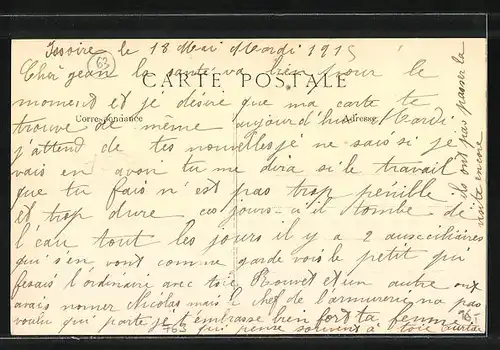 Issoire le 18 Mai Mardi 1915
63
Cher jean la santé va bien pour le
CARTE POSTALE
moment et je désire que ma carte te
Correspondance
Adresse
trouve de même aujour d'hui Mardi
j'attend de tes nouvelles je ne sais si je
vais en avoir tu me dira si le travail
que tu fais n'est pas trop penible
et trop dure ces jours ci il tombe de
l'eau tout les jours il y a 2 auxciliaires
qui s'en vont comme garde vois le petit qui
fesais l'ordinaire avec toie Rouvet et un autre ont
avais nomer Nicolas mais le chef de l'armurerie na pas
voulu qui parte je t'embrasse bien fort ta femme
qui pense souvent a toie
763
96
ils ont pas passer la
visite encore